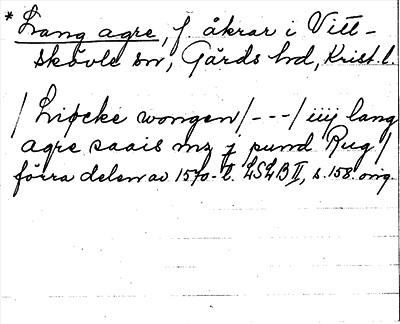 * Lang agre, f. åkrar i Vitt-
skövle sn, Gärds hd, Krist. l.
/ Liøcke wongen /---/ iiij lang
agre saais mz j pund Rug /
förra delen av 1570-t. LSLB II, s. 158. orig.